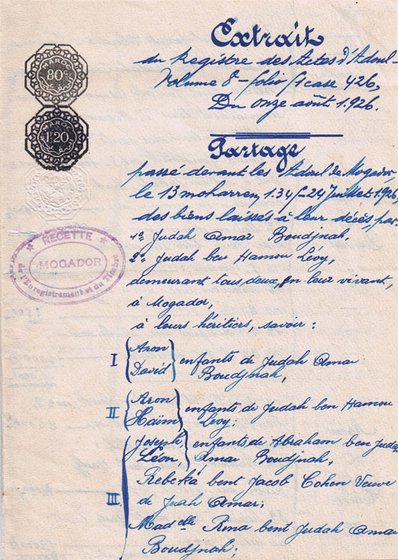 MAROC
80
MAROC
1.20
RECETTE
MOGADOR
de l'Enregistrement et du Timbre
Extrait
du Registre des Actes d'Adoul-
Volume I - folio case 426,
Du onze août 1.926.
Partage
passé devant les Adoul de Mogador
le 13 moharrem 134 - 24 Juillet 1.926,
des biens laissés à leur décès par
1° Judah Amar Boudjnah,
2° Judah ben Hamou Lévy,
demeurant tous deux, en leur vivant,
à Mogador,
à leurs héritiers, savoir :
I { Aron
David } enfants de Judah Amar
Boudjnah,
II { Aron
Haïm } enfants de Judah ben Hamou
Lévy;
III { Joseph,
Léon, } enfants de Abraham ben Judah
Amar Boudjnah,
Rebekà bent Jacob Cohen Veuve
de Juah Amar;
Mad elle Rima bent Judah Amar
Boudjnah;